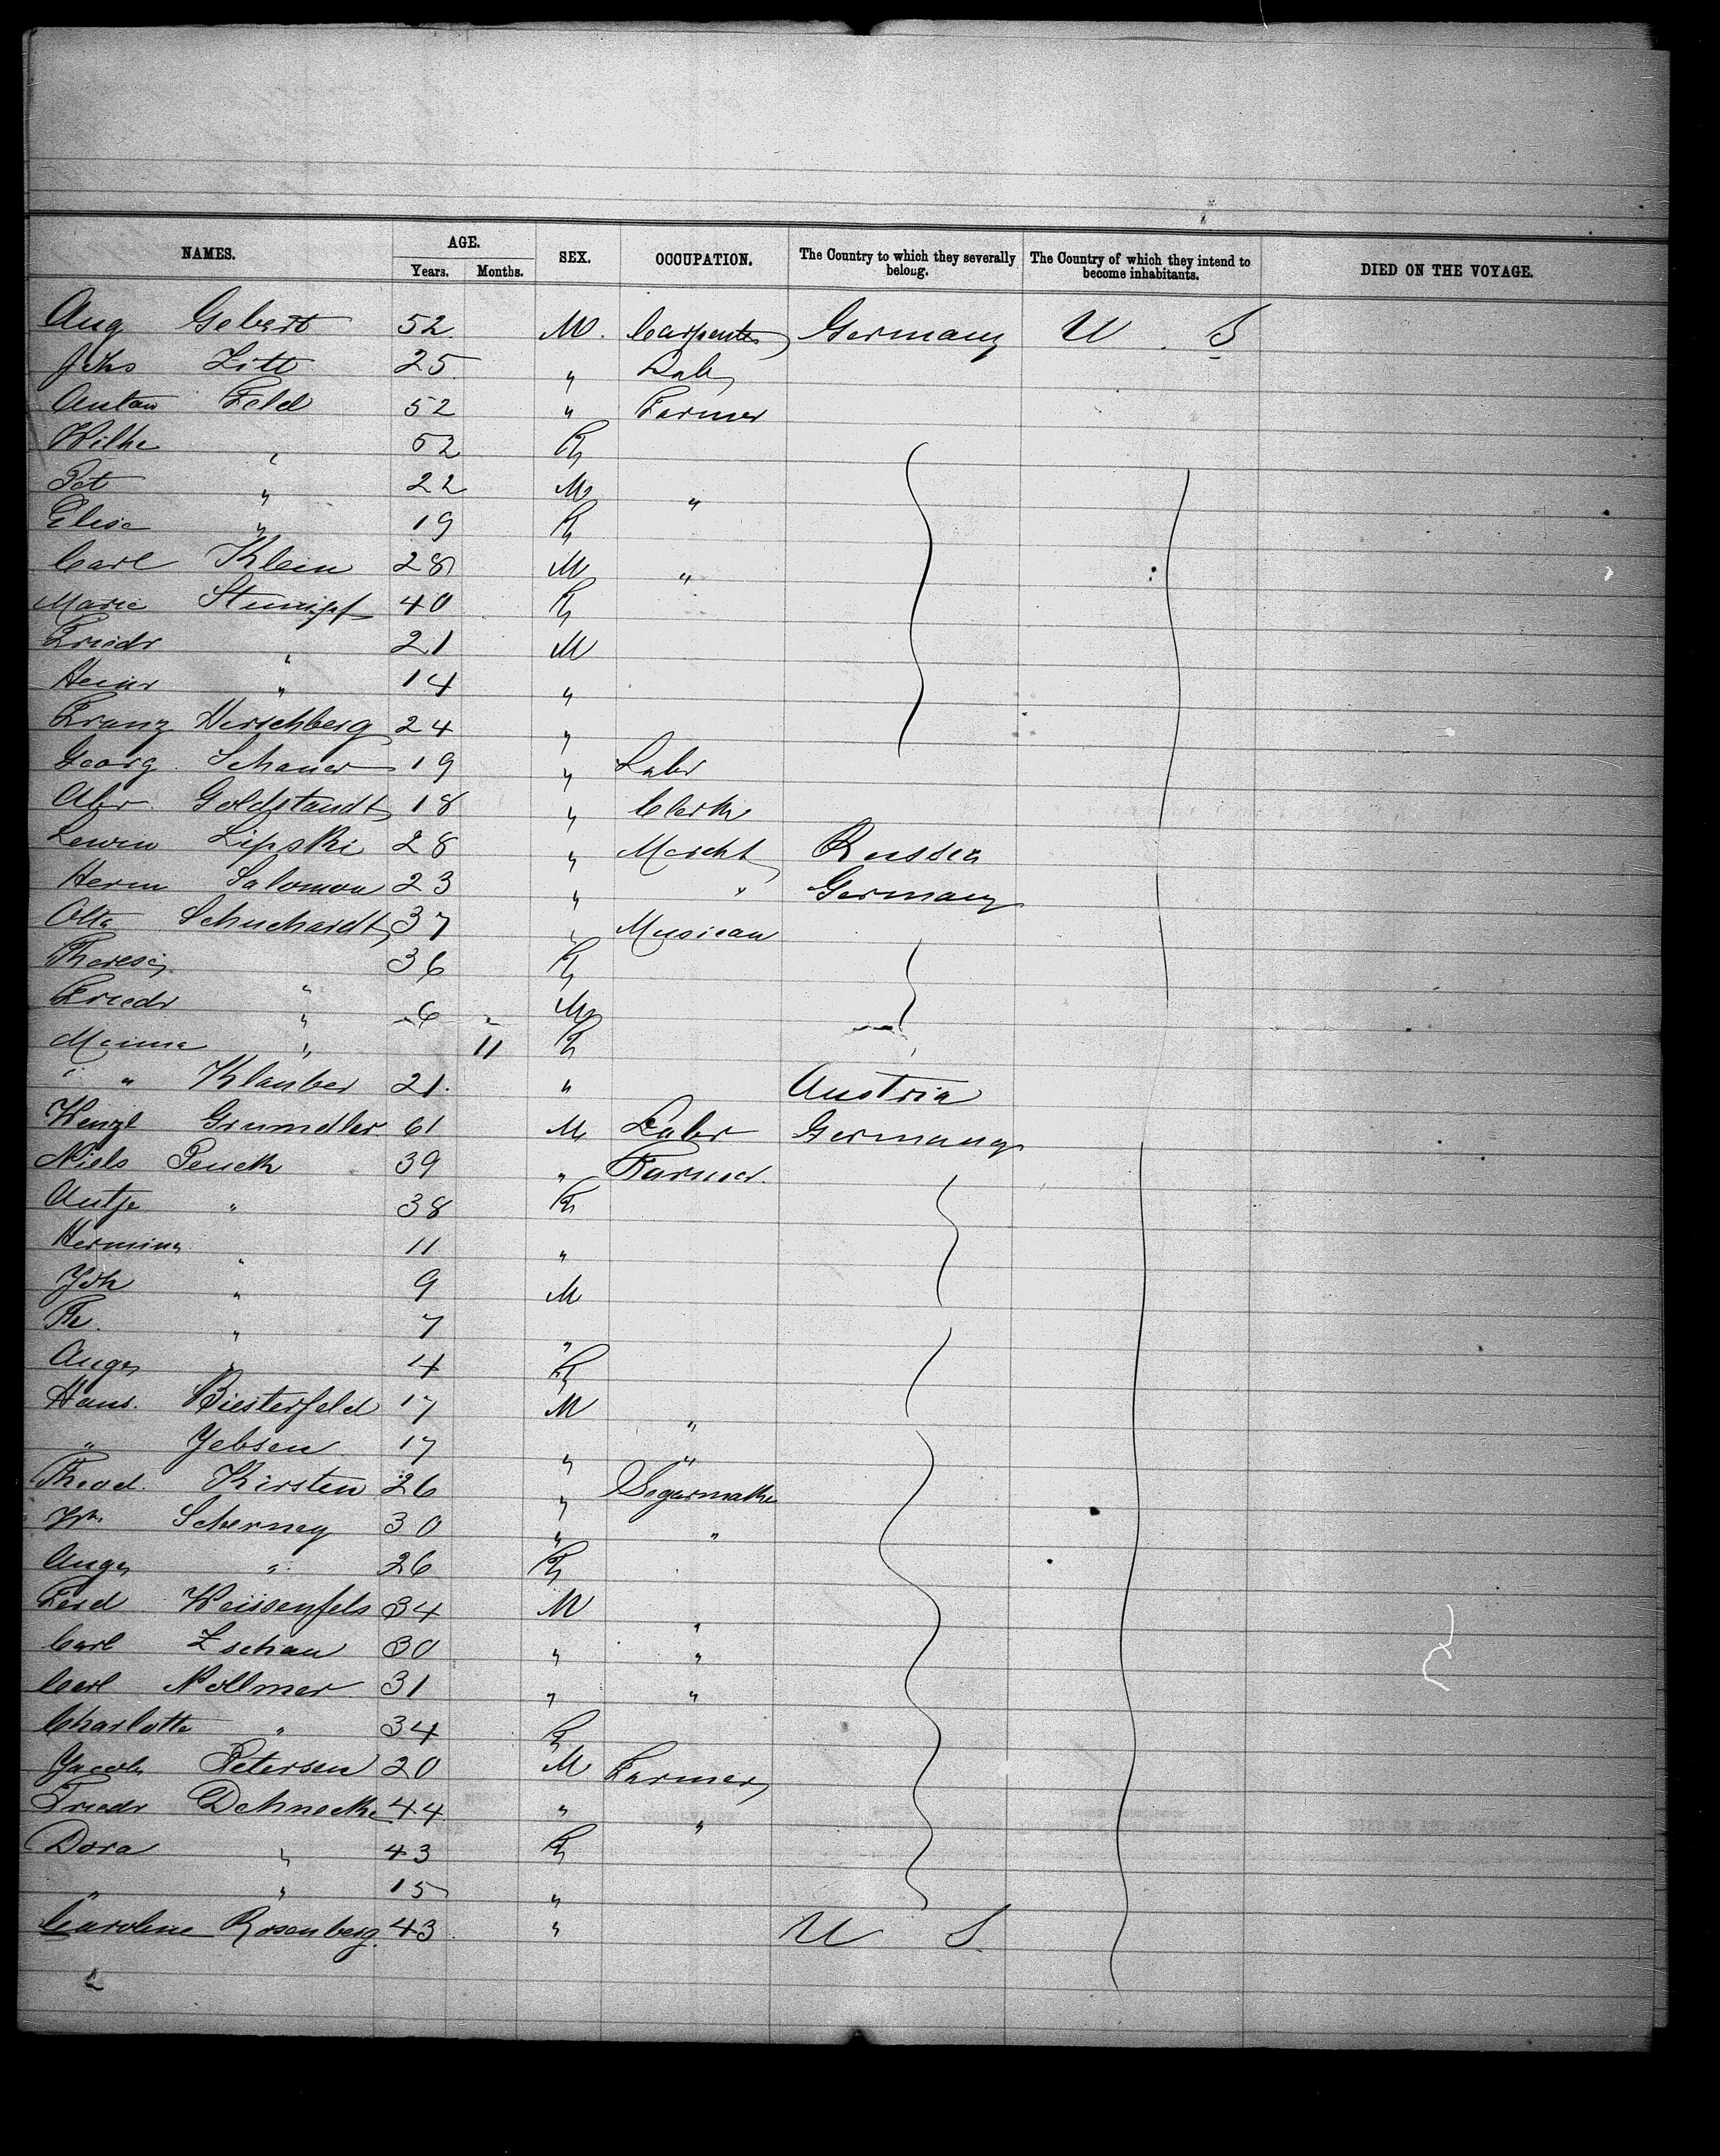 NAMES. AGE. SEX. OCCUPATION. The Country to which they severally belong. The Country of which they intend to become inhabitants. DIED ON THE VOYAGE.
Years. Months.
Aug Gebert 52 M. Carpenter Germany U. S
Johs Litt 25 " Lab
Anton Feld 52 " Farmer
Wilhe " 52 F
Pet " 22 M "
Elise " 19 F
Carl Klein 28 M "
Marie Stumpf 40 F
Friedr " 21 M
Heinr " 14 "
Franz Hirschberg 24 "
Georg Schauer 19 " Labr
Abr. Goldstandt 18 " Clerk
Lewin Lipski 28 " Marcht Russia
Herm Salomon 23 " " Germany
Otto Schuchardt 37 " Musican
Therese " 36 F
Friedr " 6 - M
Minna " 11 F
" " Klauber 21. " Austria
Wenzl Grundler 61 M Labr Germany
Niels Penck 39 " Farmer.
Antje " 38 F
Hermina " 11 "
Joh " 9 M
Fr. " 7 "
Auge " 4 F
Hans. Biesterfeld 17 M "
" Jebsen 17 " "
Theod. Kirsten 26 " Segarmake
Wm Scherney 30 " "
Auge " 26 F
Ferd Weissenfels 34 M "
Carl Zschau 30 " "
Carl Nollmer 31 " "
Charlotte " 34 F
Jacob Petersen 20 M Farmer
Friedr Dehnecke 44 " "
Dora " 43 F
" " 15 "
Caroline Rosenberg 43 " U S